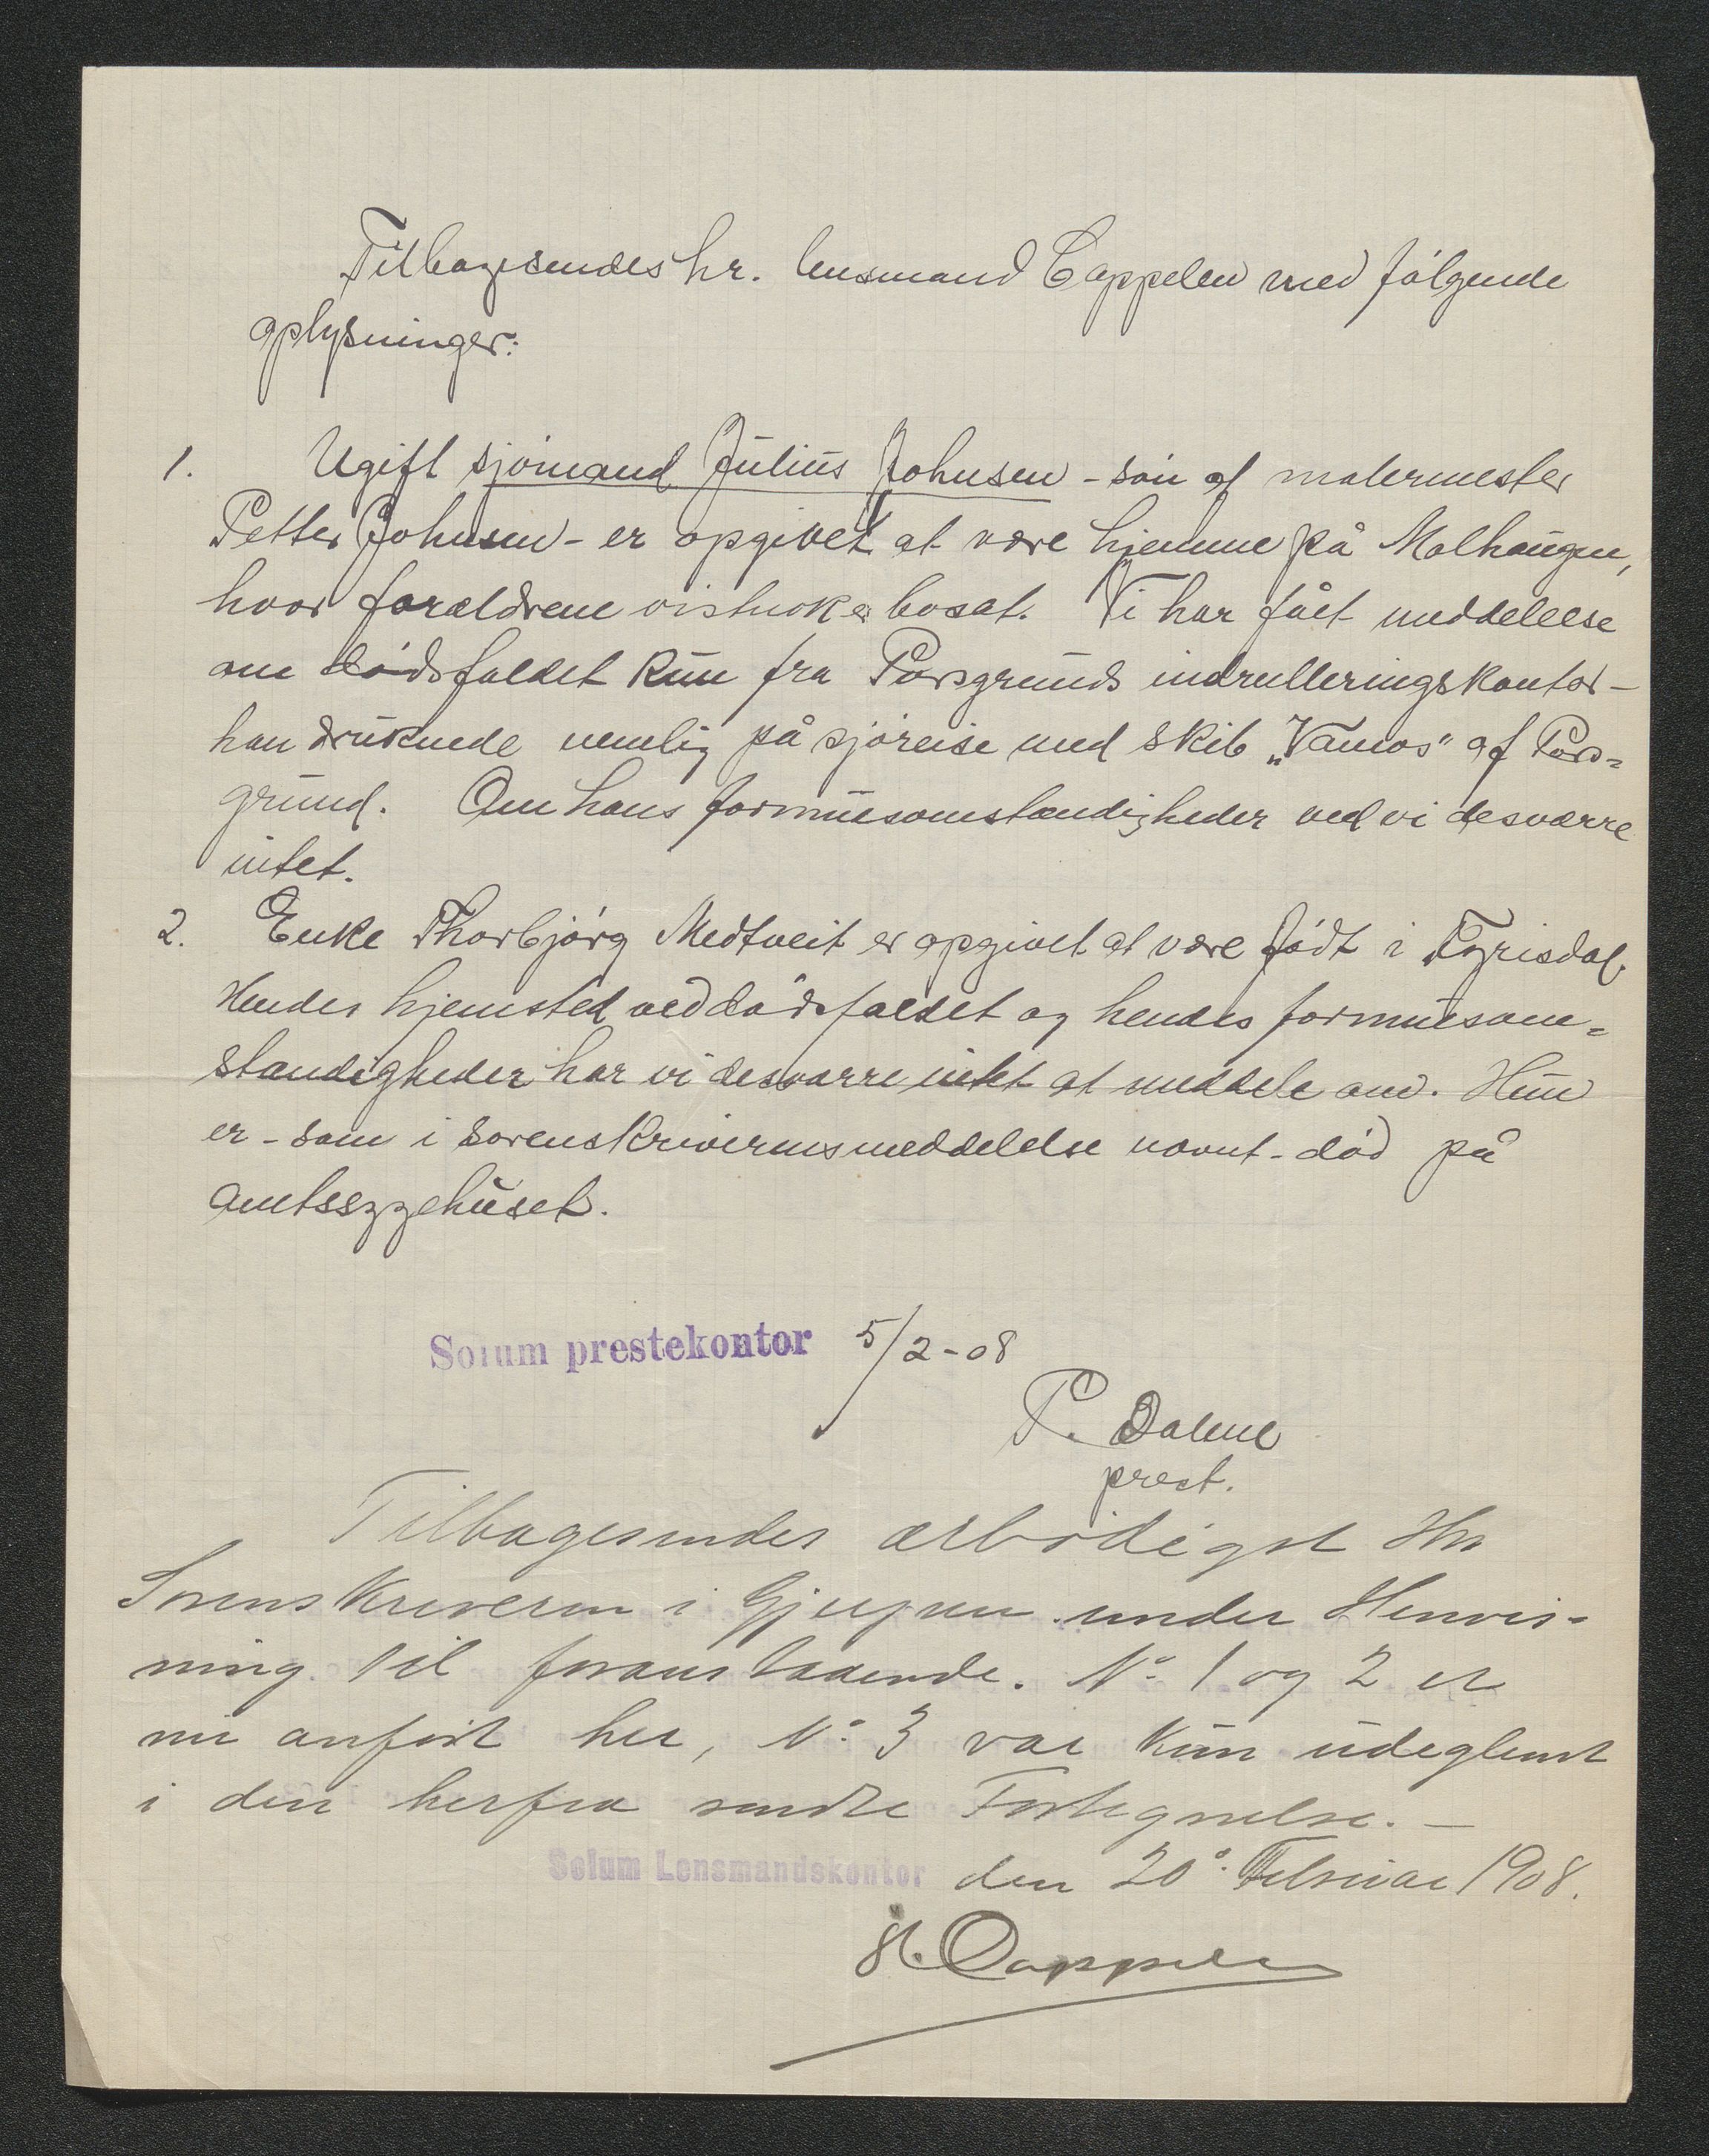 Tilbagesendes hr. lensmand Cappelen med følgende
oplysninger:
1. Ugift sjømand Julius Johnsen - søn af malermester
Petter Johnsen - er opgivet at være hjemme på Molhaugen,
hvor forældrene vistnok er bosat. Vi har fået meddelelse
om dødsfaldet kun fra Porsgrunds indrulleringskontor -
han druknede nemlig på sjøreise med skib „Vamos" af Pors=
grund. Om hans formuesomstændigheder ved vi desværre
intet.
2. Enke Thorbjørg Medtveit er opgivet at være født i Fyrisdal.
Hendes hjemsted ved dødsfaldet og hendes formuesom=
stændigheder har vi desværre intet at meddele om. Hun
er - som i sorenskriverens meddelelse nævnt - død på
amtssygehuset.
Solum prestekontor 5/2-08
P. Dalene
prest.
Tilbagesendes ærbødigst Hr.
Sorenskriveren i Gjerpen under Henvis-
ning til foranstaaende. No. 1 og 2 er
nu anført her, No. 3 var kun udeglemt
i den herfra sendte Fortegnelse. -
Solum Lensmandskontor den 20de Februar 1908.
Cappelen